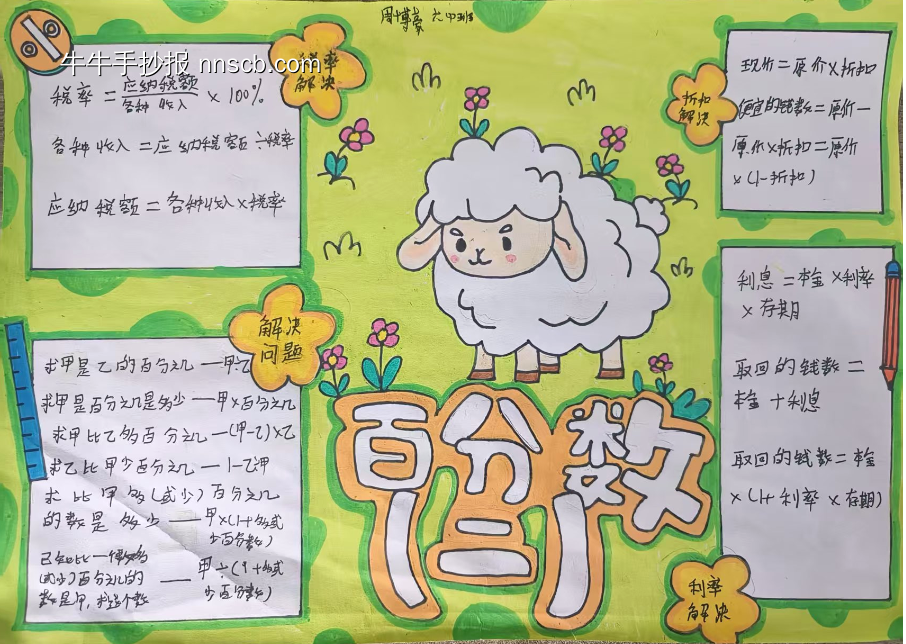 周博蒙 六(4)班
牛牛手抄报 nnscb.com
税率
解决
税率=应纳税额/各种收入×100%
各种收入=应纳税额÷税率
应纳税额=各种收入×税率
折扣
解决
现价=原价×折扣
便宜的钱数=原价-
原价×折扣=原价
×(1-折扣)
解决
问题
求甲是乙的百分之几—甲÷乙
求甲是百分之几是多少—甲×百分之几
求甲比乙多百分之几—(甲-乙)×乙
求乙比甲少百分之几—1-乙甲
求比甲多(或少)百分之几
的数是多少—甲×(1+多或
少百分数)
已知比一个数多
(或少)百分之几的
数是甲,求这个数—甲÷(1+多或
少百分数)
百分数
利息=本金×利率
×存期
取回的钱数=
本金+利息
取回的钱数=本金
×(1+利率×存期)
利率
解决